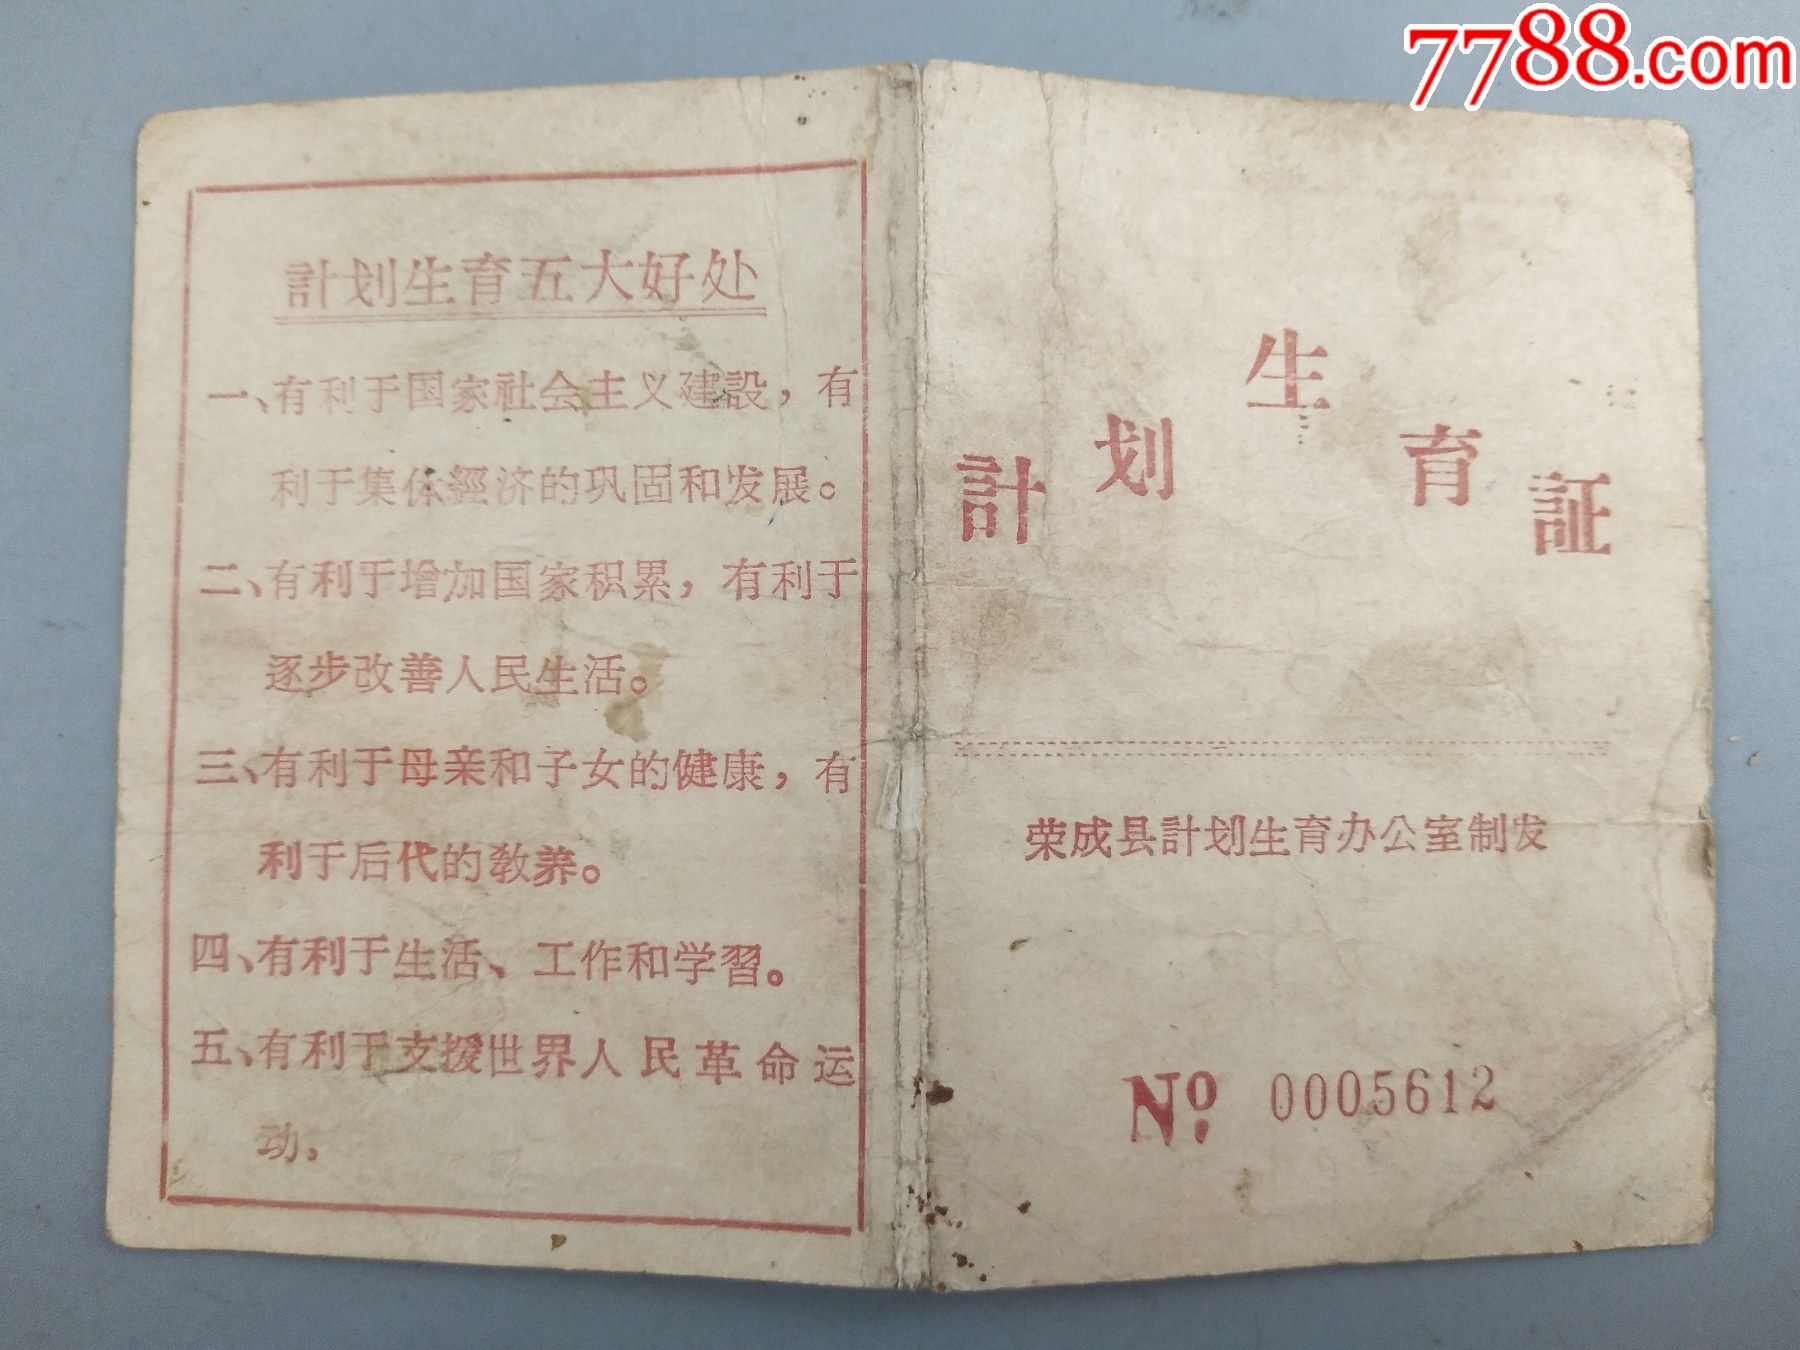 7788.com
計划生育五大好处
一、有利于国家社会主义建設，有
利于集体經济的巩固和发展。
二、有利于增加国家积累，有利于
逐步改善人民生活。
三、有利于母亲和子女的健康，有
利于后代的敎养。
四、有利于生活、工作和学習。
五、有利于支援世界人民革命运
动，
計划生育証
荣成县計划生育办公室制发
№ 0005612